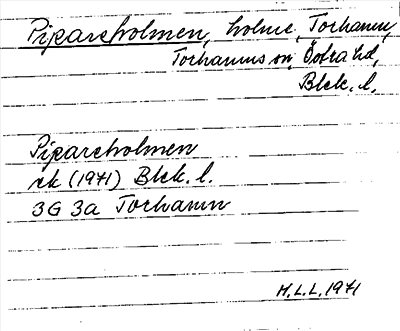 Pigareholmen, holme, Torhamn,
Torhamns sn, Östra hd,
Blek. l.
Pigareholmen
rk (1971) Blek. l.
3G 3a Torhamn
H.L.L. 1971